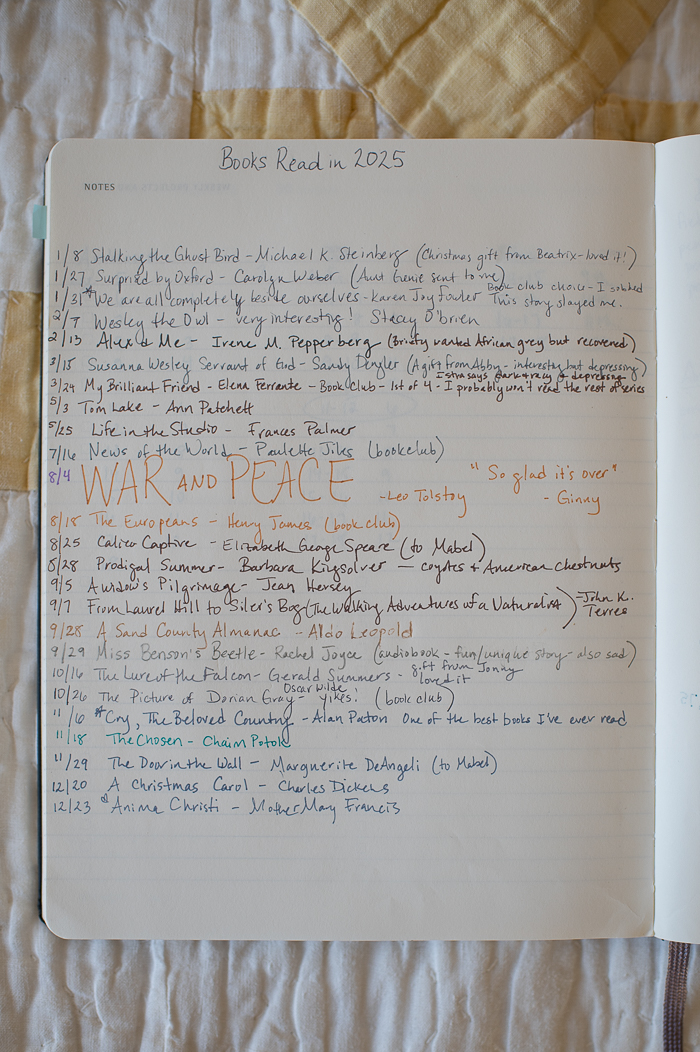 Books Read in 2025
NOTES
1/8 Stalking the Ghost Bird - Michael K. Steinberg (Christmas gift from Beatrix - loved it!)
1/27 Surprised by Oxford - Carolyn Weber (Aunt Genie sent to me)
1/31 *We are all completely beside ourselves - Karen Joy Fowler Book club choice - I sobbed This story slayed me.
2/7 Wesley the Owl - very interesting! Stacey O'brien
2/13 Alex & Me - Irene M. Pepperberg (Briefly wanted African grey but recovered)
3/15 Susanna Wesley Servant of God - Sandy Dengler (A gift from Abby - interesting but depressing)
3/24 My Brilliant Friend - Elena Ferrante - Book Club - 1st of 4 - I probably won't read the rest of series
5/3 Tom Lake - Ann Patchett
5/25 Life in the Studio - Frances Palmer
7/16 News of the World - Paulette Jiles (bookclub)
8/4 WAR AND PEACE - Leo Tolstoy "So glad it's over" - Ginny
8/18 The Europeans - Henry James (book club)
8/25 Calico Captive - Elizabeth George Speare (to Mabel)
8/28 Prodigal Summer - Barbara Kingsolver — coyotes + American Chestnuts
9/5 A widow's Pilgrimage - Jean Hersey
9/7 From Laurel Hill to Siler's Bog (The Walking Adventures of a Naturalist) - John K. Terres
9/28 A Sand County Almanac - Aldo Leopold
9/29 Miss Benson's Beetle - Rachel Joyce (audiobook - fun/unique story - also sad)
10/16 The Lure of the Falcon - Gerald Summers - gift from Jonny loved it
10/26 The Picture of Dorian Gray - Oscar Wilde yikes! (book club)
11/6 *Cry, The Beloved Country - Alan Paton One of the best books I've ever read
11/18 The Chosen - Chaim Potok
11/29 The Door in the Wall - Marguerite DeAngeli (to Mabel)
12/20 A Christmas Carol - Charles Dickens
12/23 Anima Christi - Mother Mary Francis